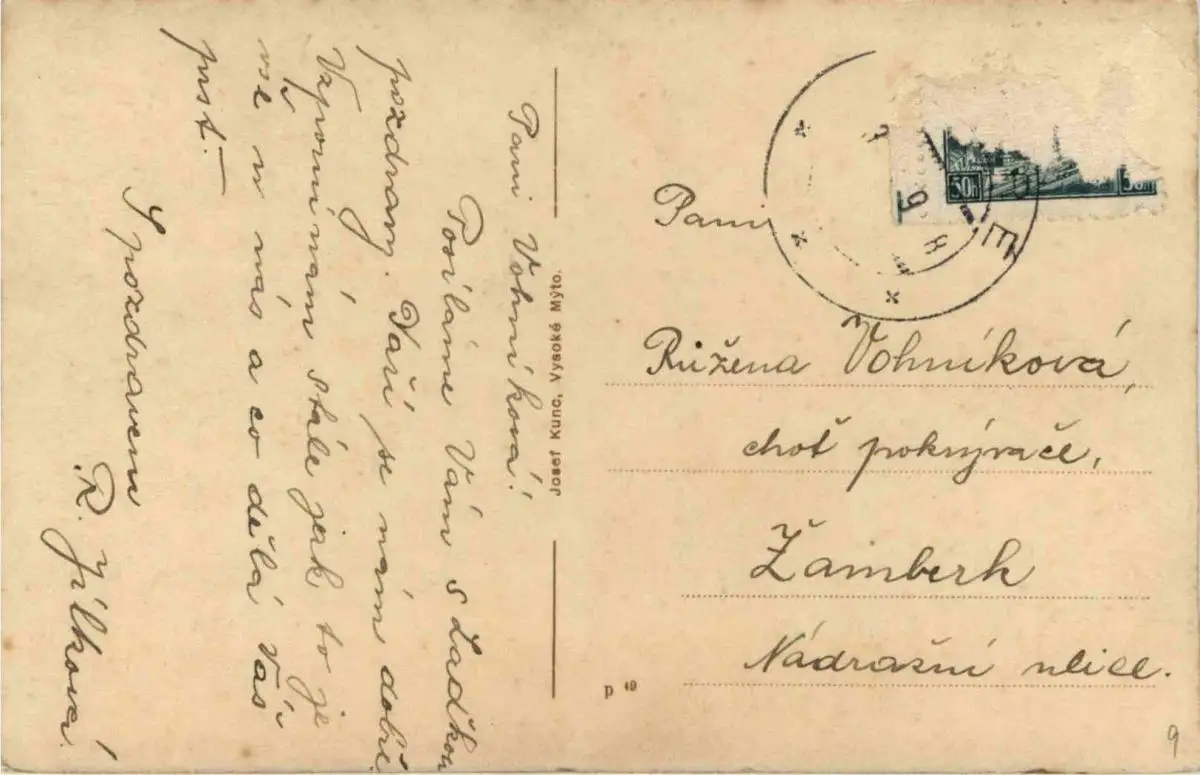 Paní Vohníková!
Posíláme Vám s Ladkou
pozdravy. Daří se nám dobře.
Vzpomínám stále jak to je
vše u nás a co dělá Váš
prst.—
S pozdravem
R. Jílková.
Josef Kunc, Vysoké Mýto.
p 49
50h
Paní
Růžena Vohníková,
choť pokrývače,
Žamberk
Nádražní ulice.
9